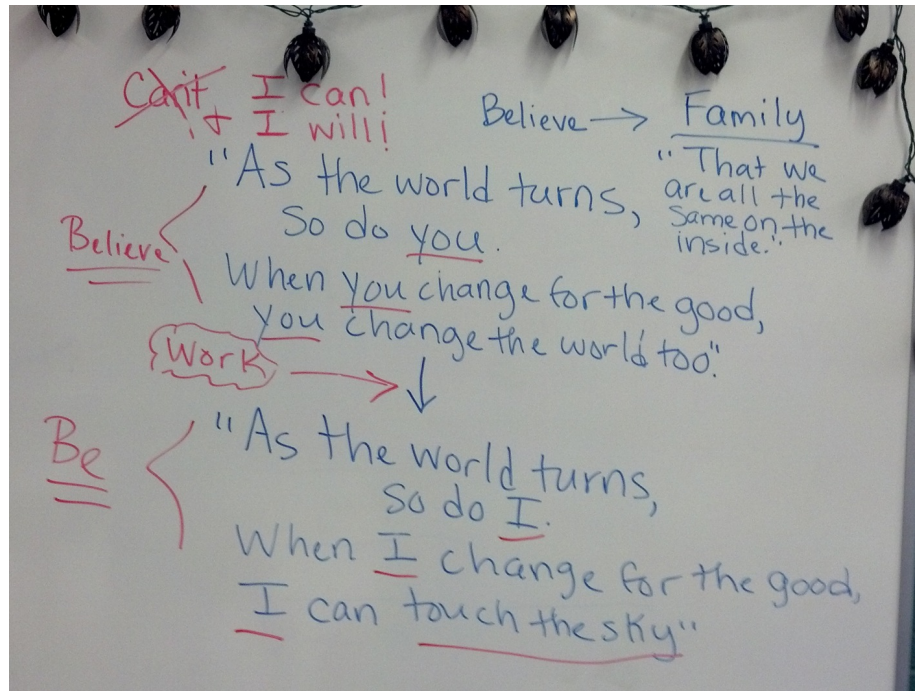 Can't I can!
+ I will!
Believe → Family
"That we
are all the
same on the
inside."
"As the world turns,
So do you.
Believe
When you change for the good,
you change the world too."
Work
Be
"As the world turns,
So do I.
When I change for the good,
I can touch the sky"